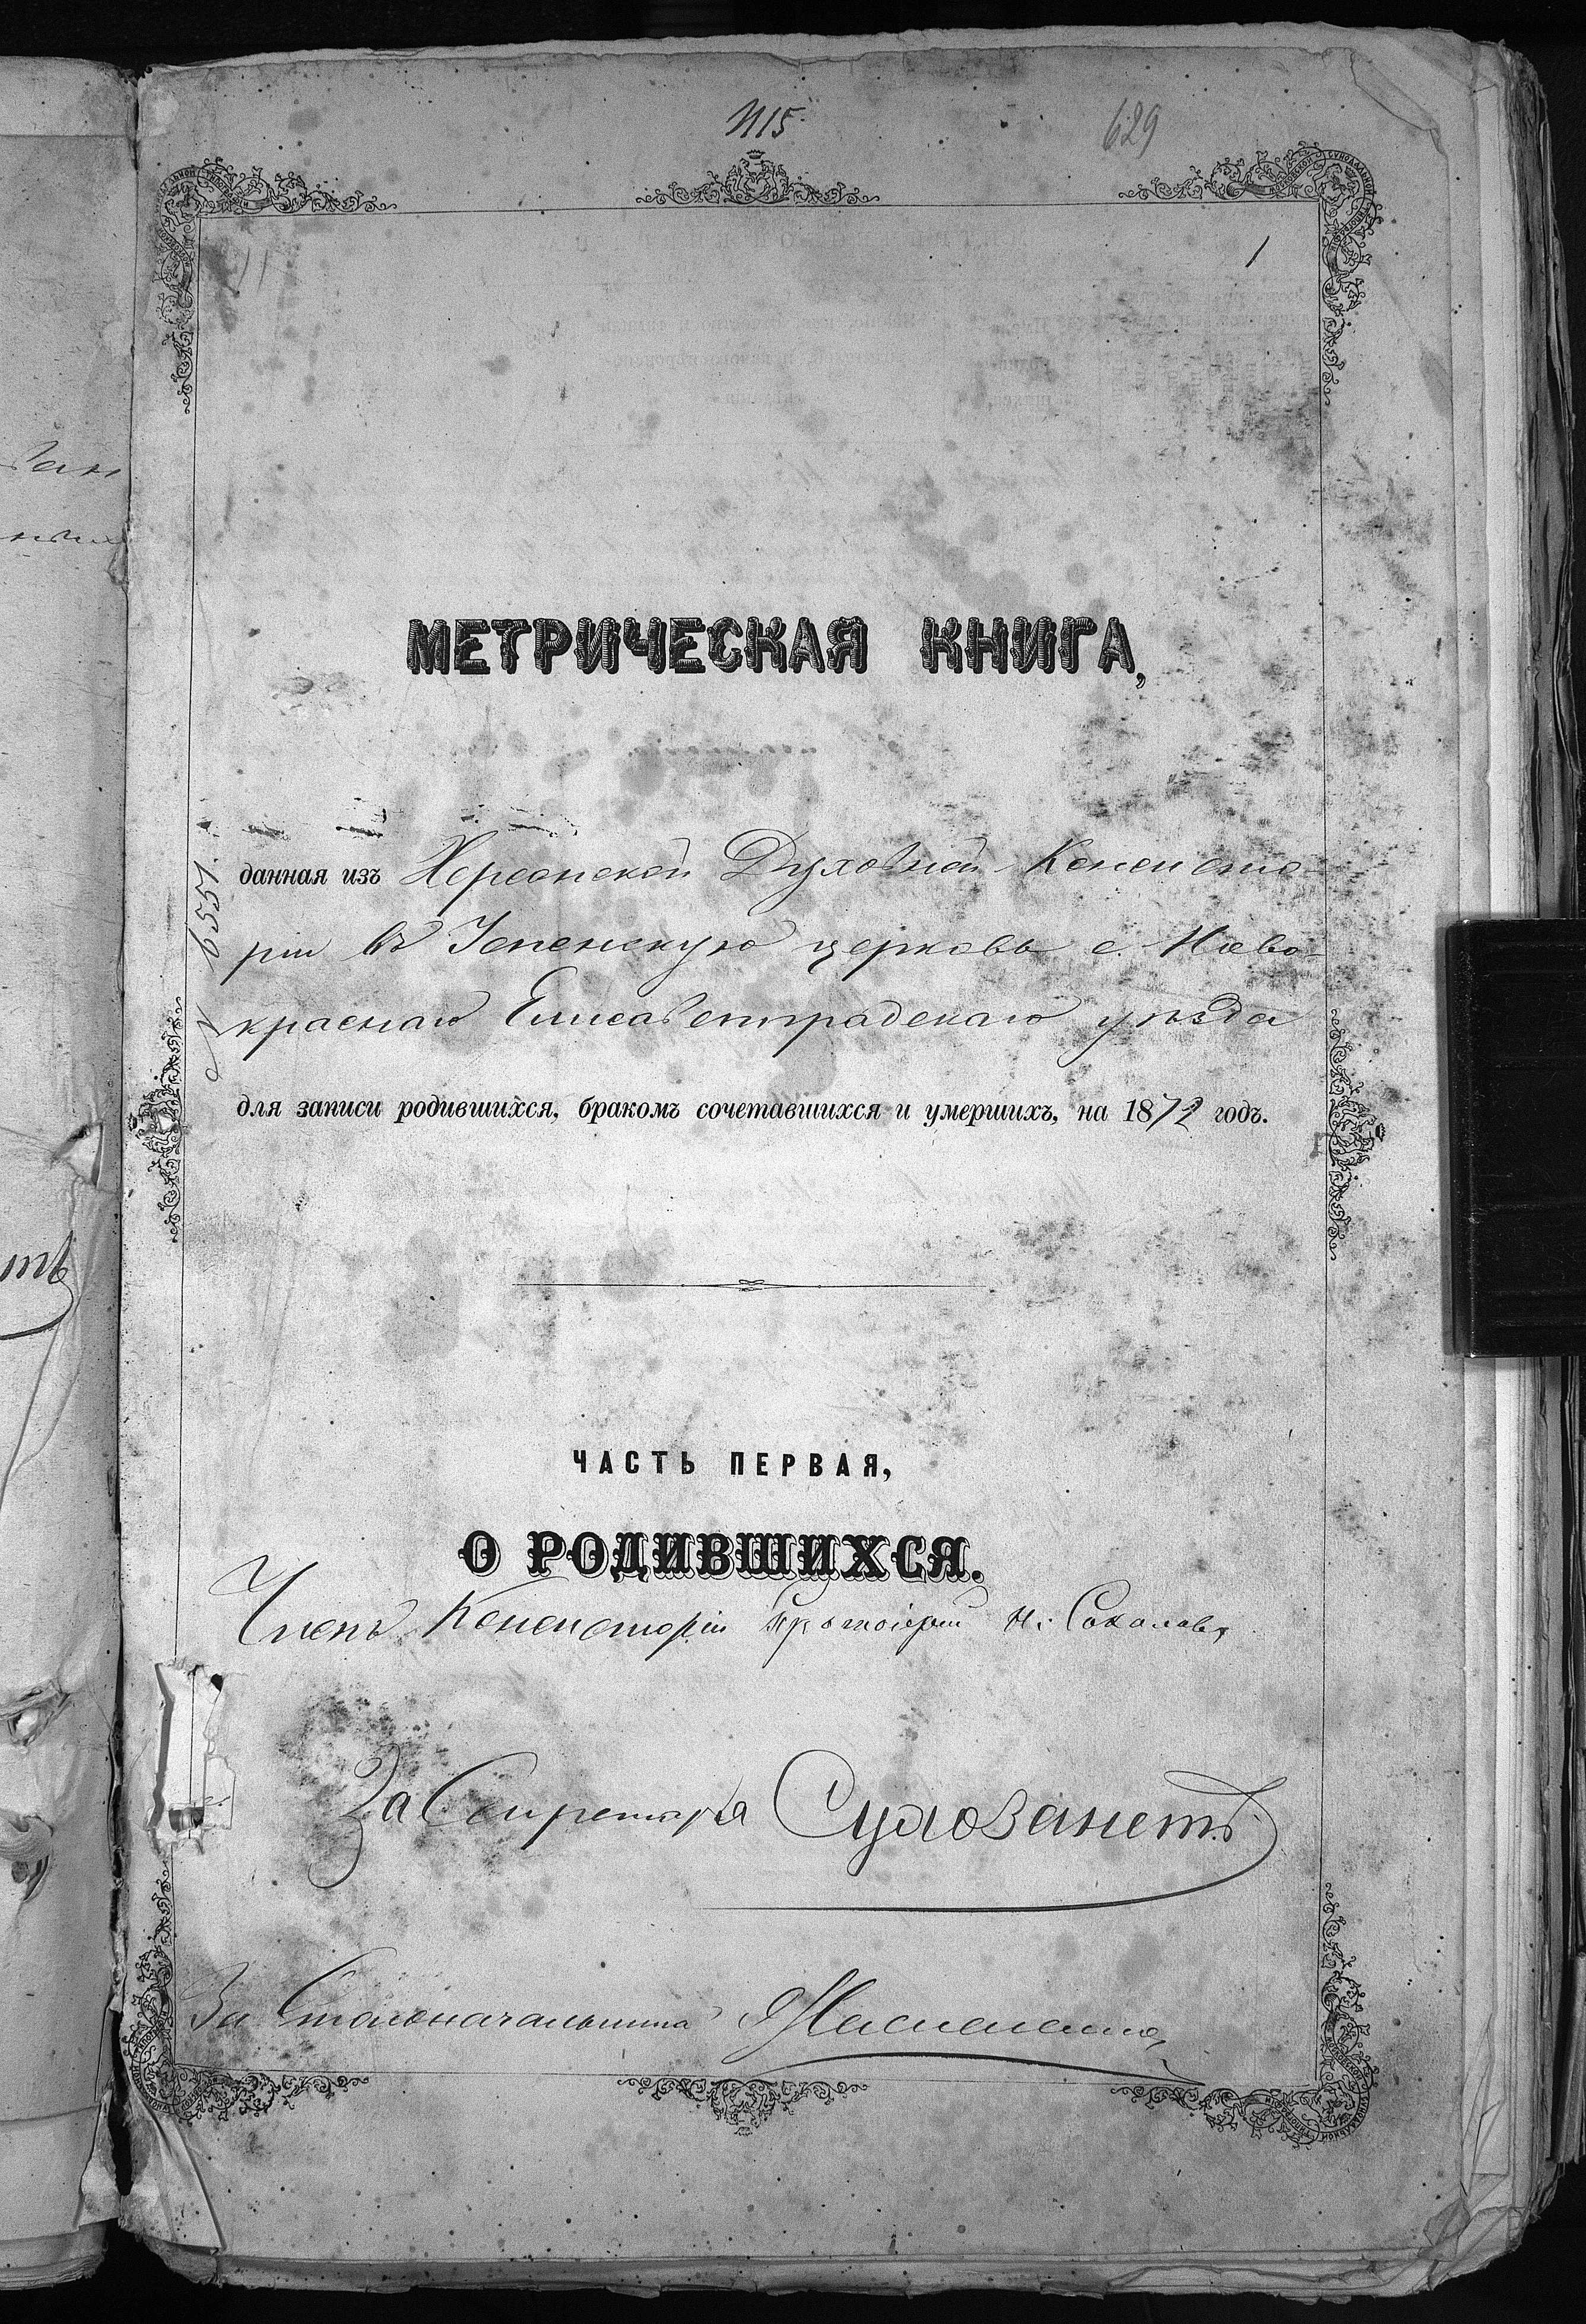 N15
629
1
МЕТРИЧЕСКАЯ КНИГА,
данная изъ Херсонской Духовной Консисто-
ріи въ Успенскую церковь с. Ново-
краснаго Елисаветградскаго уѣзда
N 6551.
для записи родившихся, бракомъ сочетавшихся и умершихъ, на 1872 годъ.
ЧАСТЬ ПЕРВАЯ,
О РОДИВШИХСЯ.
Членъ Консисторіи Протоіерей Н: Соколовъ
За Секретаря
За Столоначальника